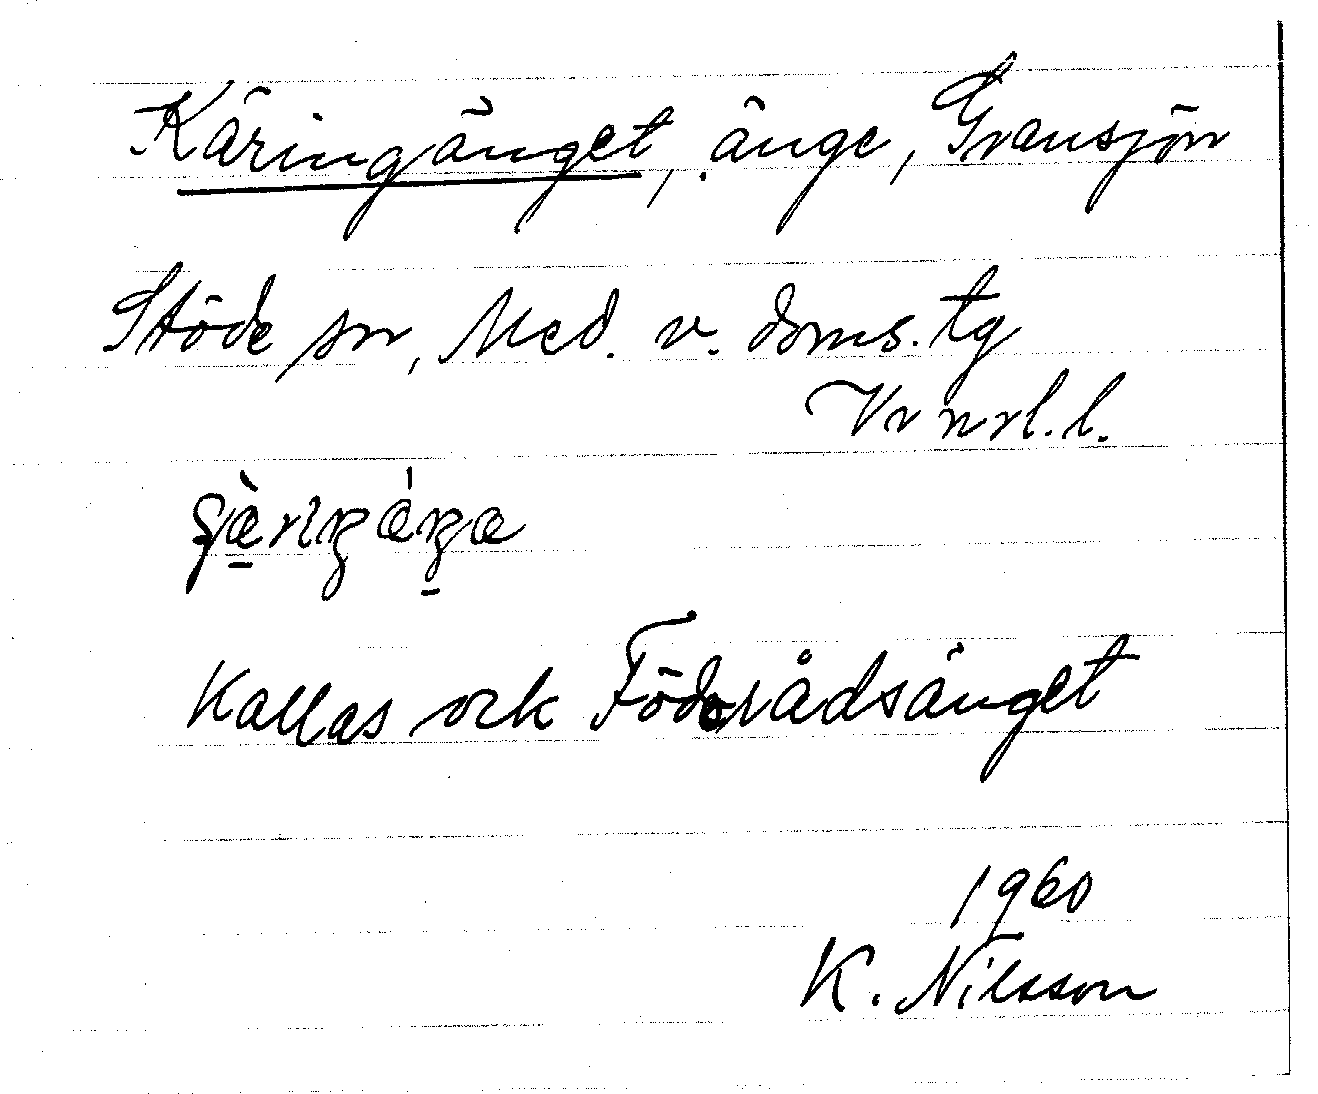 Käringänget, änge, Gransjön
Stöde sn, Med. v. doms. tg
Vr nrl. l.
Kallas ock Föderådsänget
1960
K. Nilsson